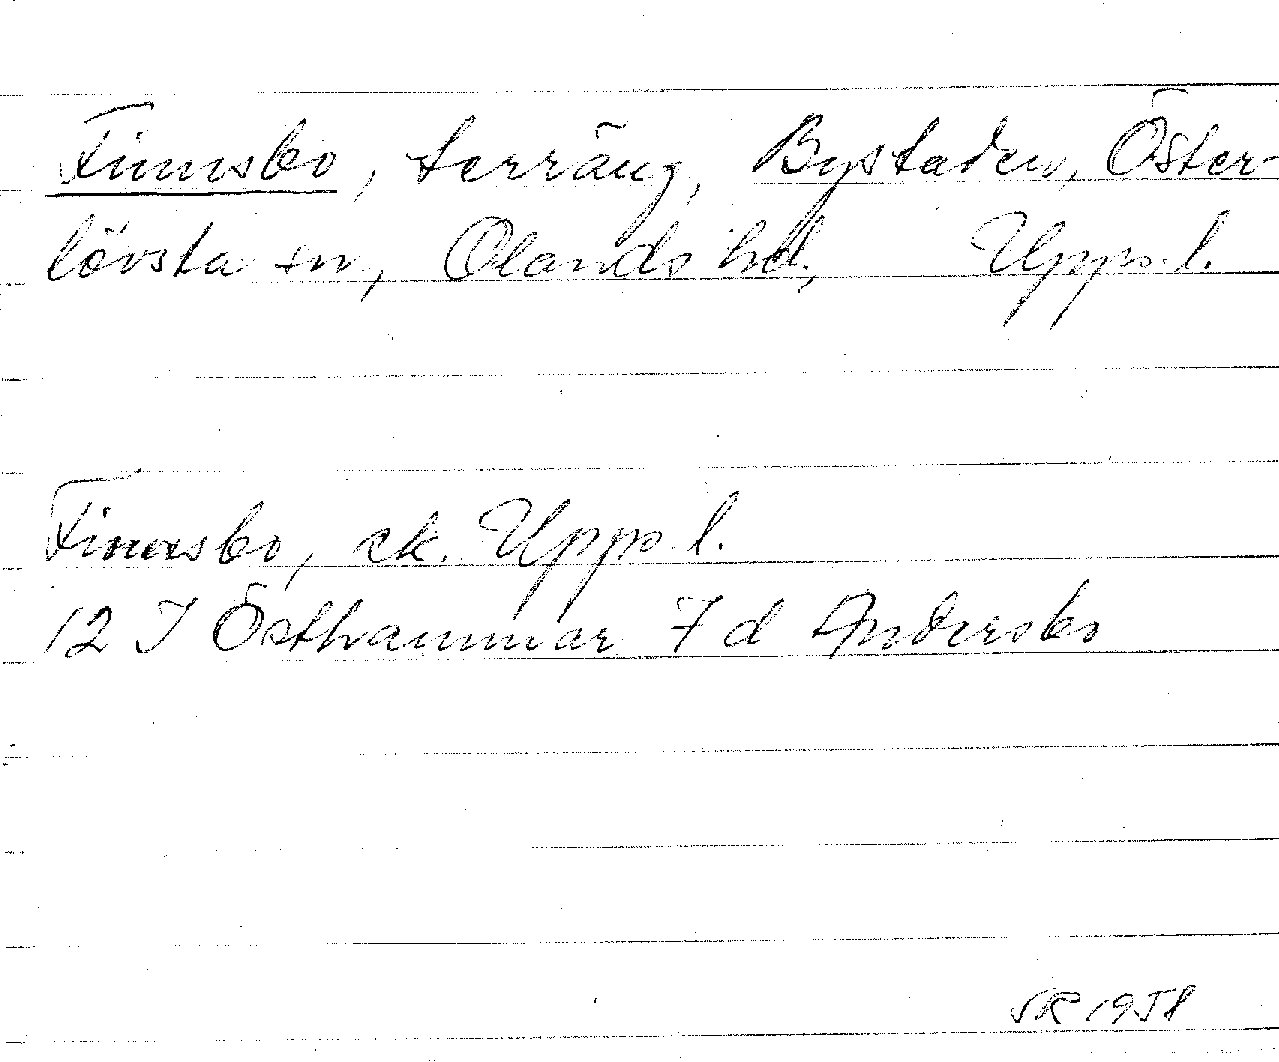 Finnsbo, terräng, Bystaden, Öster-
lövsta sn, Olands hd, Uppl.
Finnsbo, ek. Uppl.
12 I Östhammar 7 d Andersbo
1958